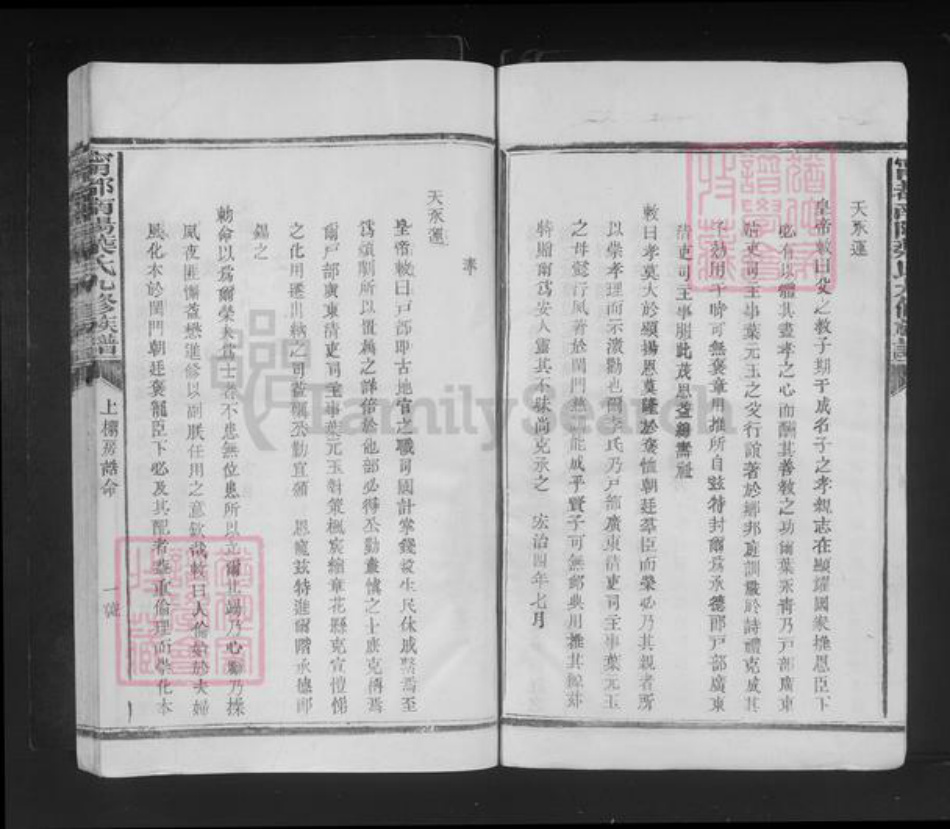 天承運
皇帝敕曰父之教子期于成名子之孝親志在顯耀國家推恩臣下
必有以體其盡孝之心而酬其善教之功爾葉永青乃戶部廣東
清吏司主事葉元玉之父行誼著於鄉邦庭訓嚴於詩禮克成其
子効用于時可無褒章用推所自茲特封爾爲承德郎戶部廣東
清吏司主事服此茂恩益綿壽祉
敕曰孝莫大於顯揚恩莫隆於褒恤朝廷羣臣而榮必乃其親者所
以崇孝理而示激勸也爾李氏乃戶部廣東清吏司主事葉元玉
之母懿行夙著於閨門慈能成乎賢子可無卹典用推其
特贈爾爲安人靈其不昧尚克承之 宏治四年七月
奉
天承運
皇帝敕曰戶部即古地官之職司國計掌錢穀生民休戚繫焉至
爲煩劇所以置屬之詳倍於他部必得丞勤畫慎之士庶克傳焉
爾戶部廣東清吏司主事葉元玉對策楓宸綰章花縣克宣愷悌
之化用遷出納之司益稱丞勤宜頒 恩寵茲特進爾階承德郎
錫之
勅命以爲爾榮夫爲士者不患無位患所以立爾其竭乃心勵乃操
夙夜匪懈益懋進修以副朕任用之意欽哉敕曰人倫始於夫婦
風化本於閨門朝廷褒寵臣下必及其配者重倫理而崇化本
甯都南陽葉氏九修族譜
上欄房誥命